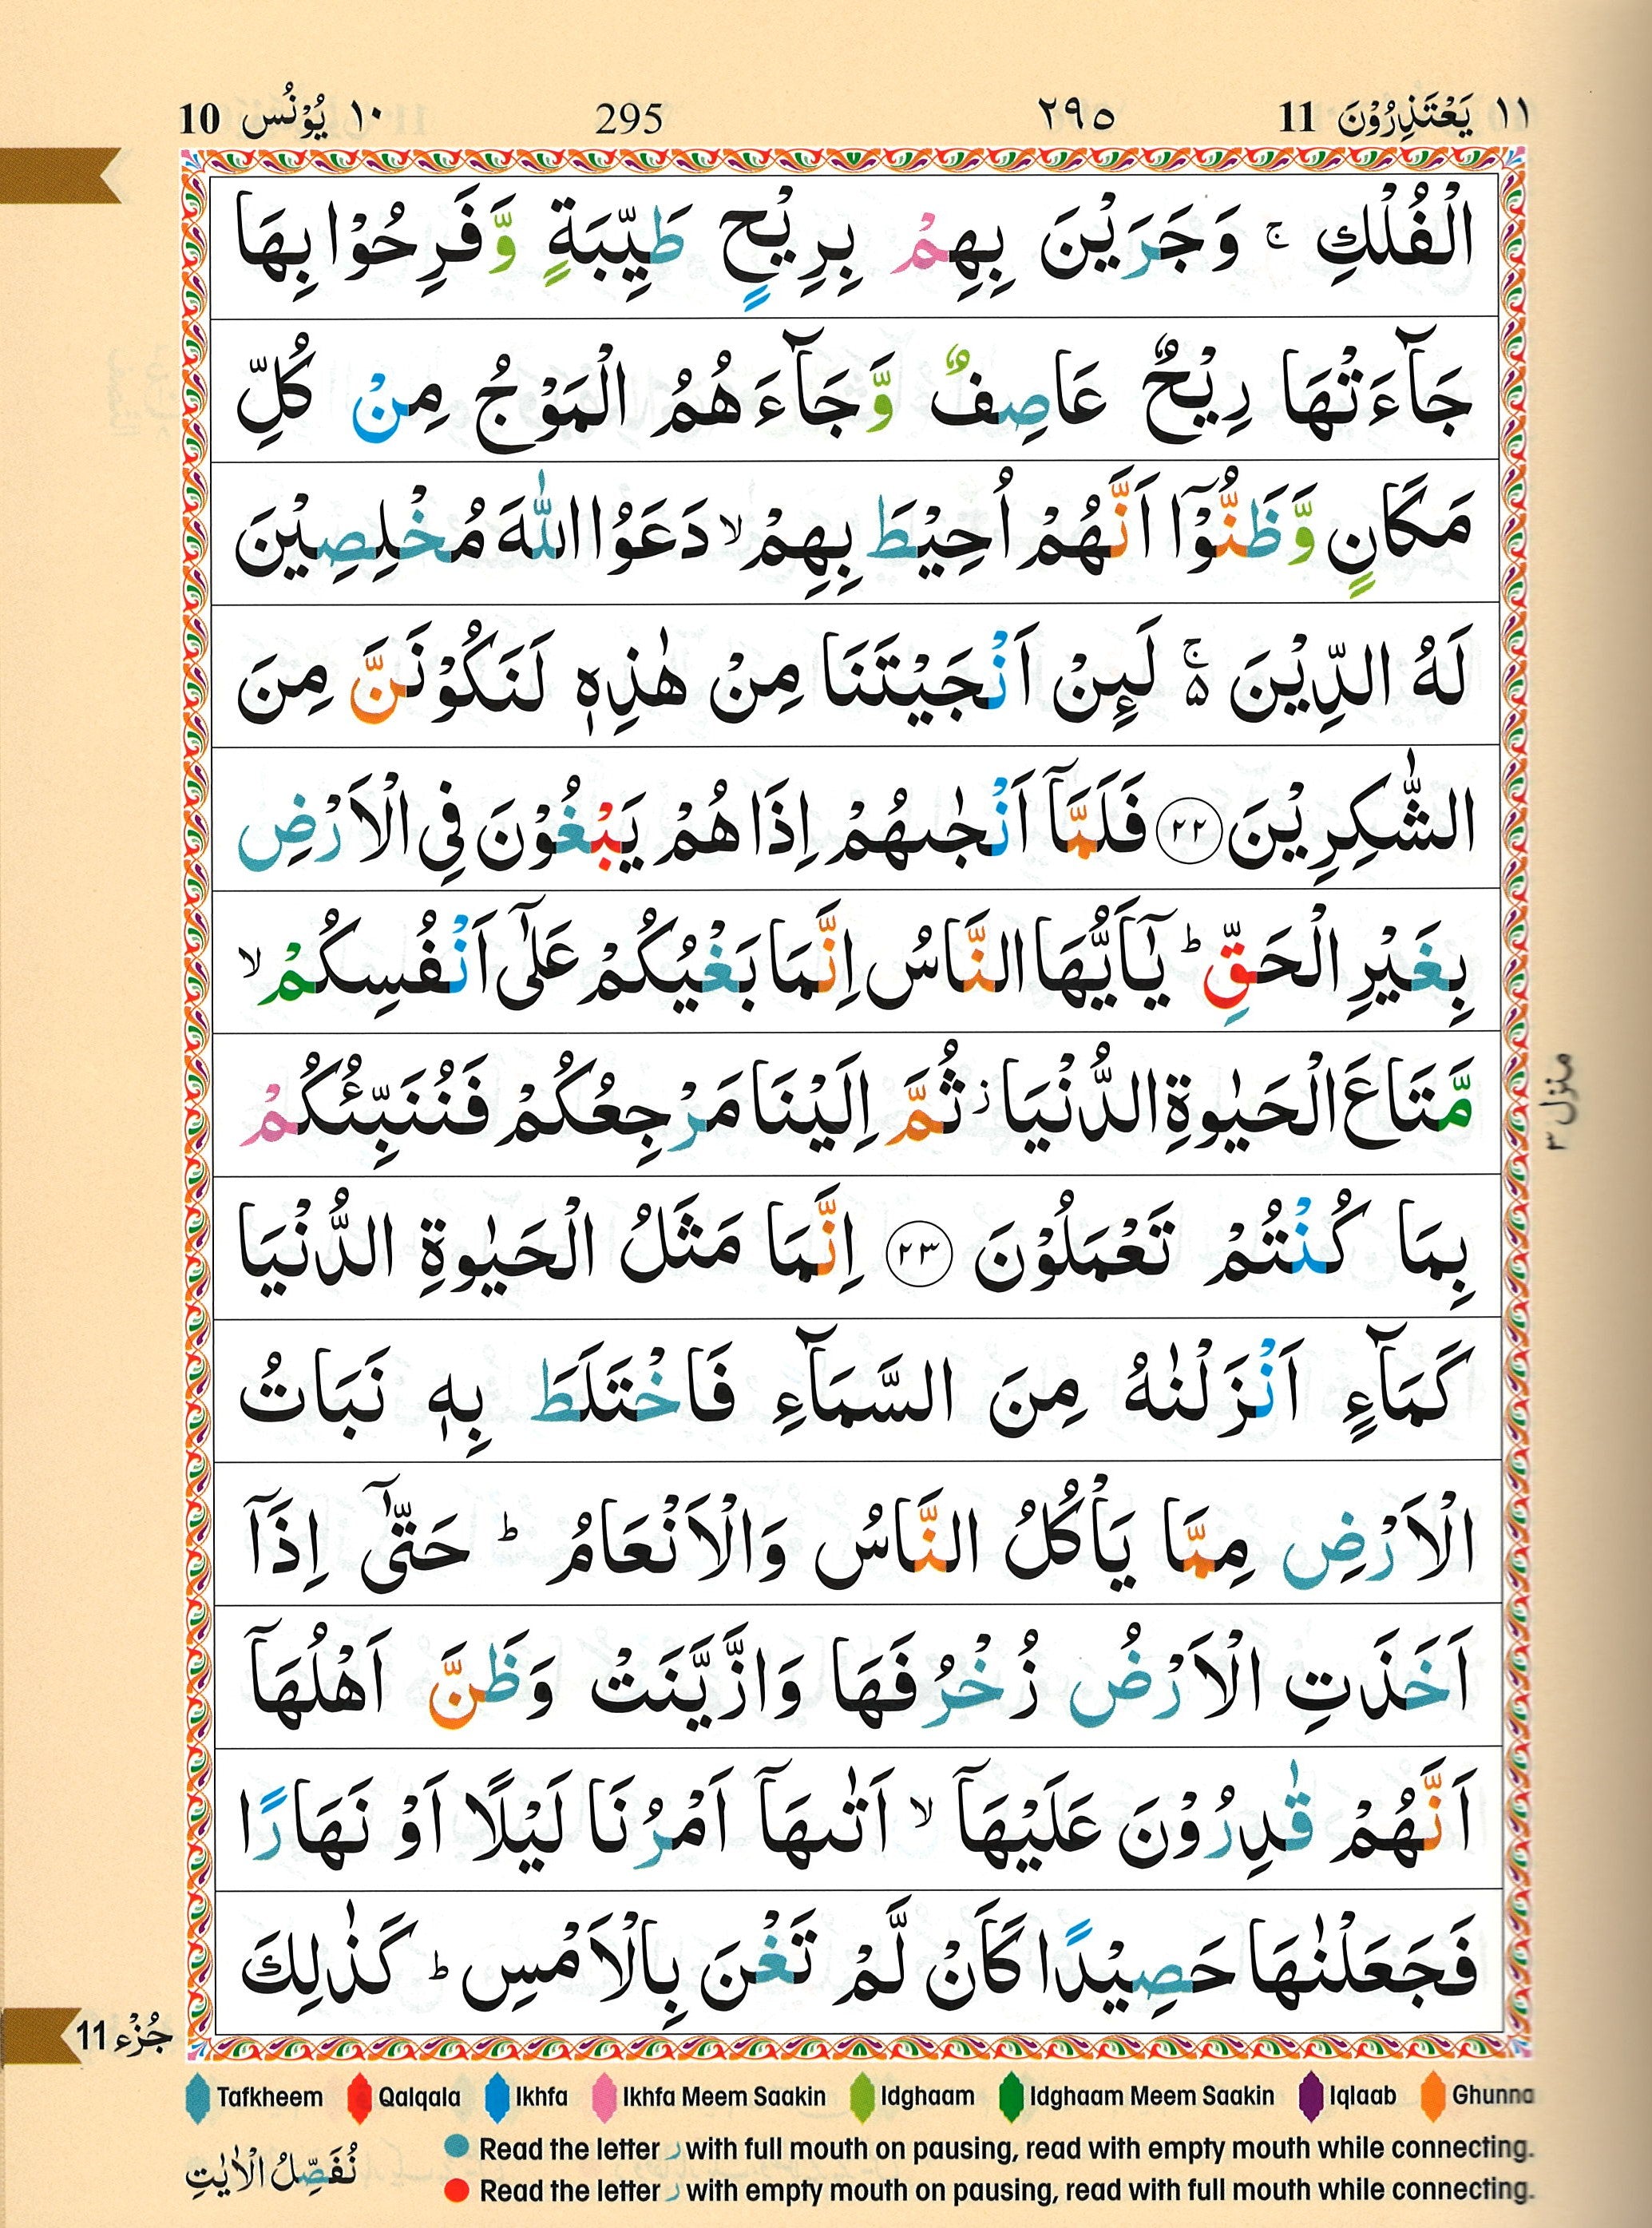 ۱۱ يَعْتَذِرُوْنَ 11 ۲۹۵ 295 ۱۰ يُوْنُس 10
الْفُلْكِ ۚ وَجَرَيْنَ بِهِمْ بِرِيْحٍ طَيِّبَةٍ وَّفَرِحُوْا بِهَا
جَآءَتْهَا رِيْحٌ عَاصِفٌ وَّجَآءَهُمُ الْمَوْجُ مِنْ كُلِّ
مَكَانٍ وَّظَنُّوْٓا اَنَّهُمْ اُحِيْطَ بِهِمْ ۙ دَعَوُا اللّٰهَ مُخْلِصِيْنَ
لَهُ الدِّيْنَ ۚ۬ لَىِٕنْ اَنْجَيْتَنَا مِنْ هٰذِهٖ لَنَكُوْنَنَّ مِنَ
الشّٰكِرِيْنَ ۲۲ فَلَمَّآ اَنْجٰىهُمْ اِذَا هُمْ يَبْغُوْنَ فِى الْاَرْضِ
بِغَيْرِ الْحَقِّ ؕ يٰٓاَيُّهَا النَّاسُ اِنَّمَا بَغْيُكُمْ عَلٰٓى اَنْفُسِكُمْ ۙ
مَّتَاعَ الْحَيٰوةِ الدُّنْيَا ؗ ثُمَّ اِلَيْنَا مَرْجِعُكُمْ فَنُنَبِّئُكُمْ
بِمَا كُنْتُمْ تَعْمَلُوْنَ ۲۳ اِنَّمَا مَثَلُ الْحَيٰوةِ الدُّنْيَا
كَمَآءٍ اَنْزَلْنٰهُ مِنَ السَّمَآءِ فَاخْتَلَطَ بِهٖ نَبَاتُ
الْاَرْضِ مِمَّا يَاْكُلُ النَّاسُ وَالْاَنْعَامُ ؕ حَتّٰٓى اِذَآ
اَخَذَتِ الْاَرْضُ زُخْرُفَهَا وَازَّيَّنَتْ وَظَنَّ اَهْلُهَآ
اَنَّهُمْ قٰدِرُوْنَ عَلَيْهَآ ۙ اَتٰىهَآ اَمْرُنَا لَيْلًا اَوْ نَهَارًا
فَجَعَلْنٰهَا حَصِيْدًا كَاَنْ لَّمْ تَغْنَ بِالْاَمْسِ ؕ كَذٰلِكَ
منزل ۳
جُزْء 11
Tafkheem Qalqala Ikhfa Ikhfa Meem Saakin Idghaam Idghaam Meem Saakin Iqlaab Ghunna
Read the letter ر with full mouth on pausing, read with empty mouth while connecting.
Read the letter ر with empty mouth on pausing, read with full mouth while connecting.
نُفَصِّلُ الْاٰيٰتِ